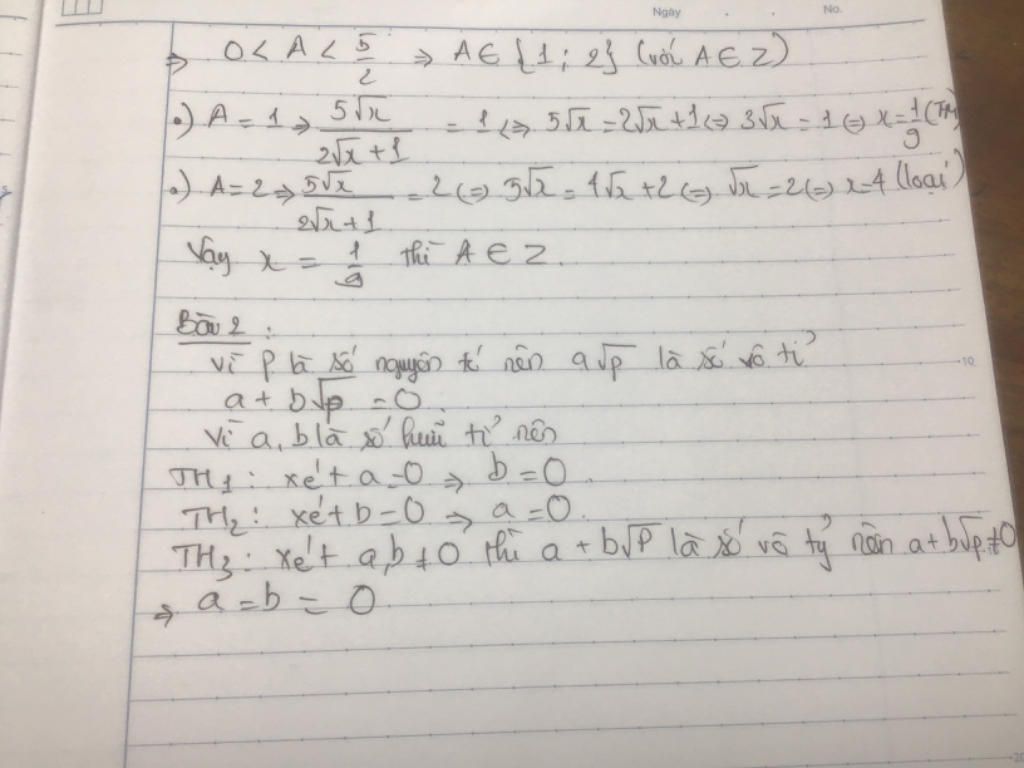 Ngày . . No.
⇒ 0 < A < 5/2 ⇒ A ∈ {1 ; 2} (với A ∈ Z)
•) A = 1 ⇒ 5√x/(2√x + 1) = 1 ⇔ 5√x = 2√x + 1 ⇔ 3√x = 1 ⇔ x = 1/9 (TM)
•) A = 2 ⇒ 5√x/(2√x + 1) = 2 ⇔ 5√x = 4√x + 2 ⇔ √x = 2 ⇔ x = 4 (loại)
Vậy x = 1/9 thì A ∈ Z.
Bài 2 :
Vì p là số nguyên tố nên a√p là số vô tỉ
10
a + b√p = 0.
Vì a, b là số hữu tỉ nên
TH1 : xét a = 0 ⇒ b = 0
TH2 : xét b = 0 ⇒ a = 0.
TH3 : xét a, b ≠ 0 thì a + b√p là số vô tỷ nên a + b√p ≠ 0
⇒ a = b = 0
20